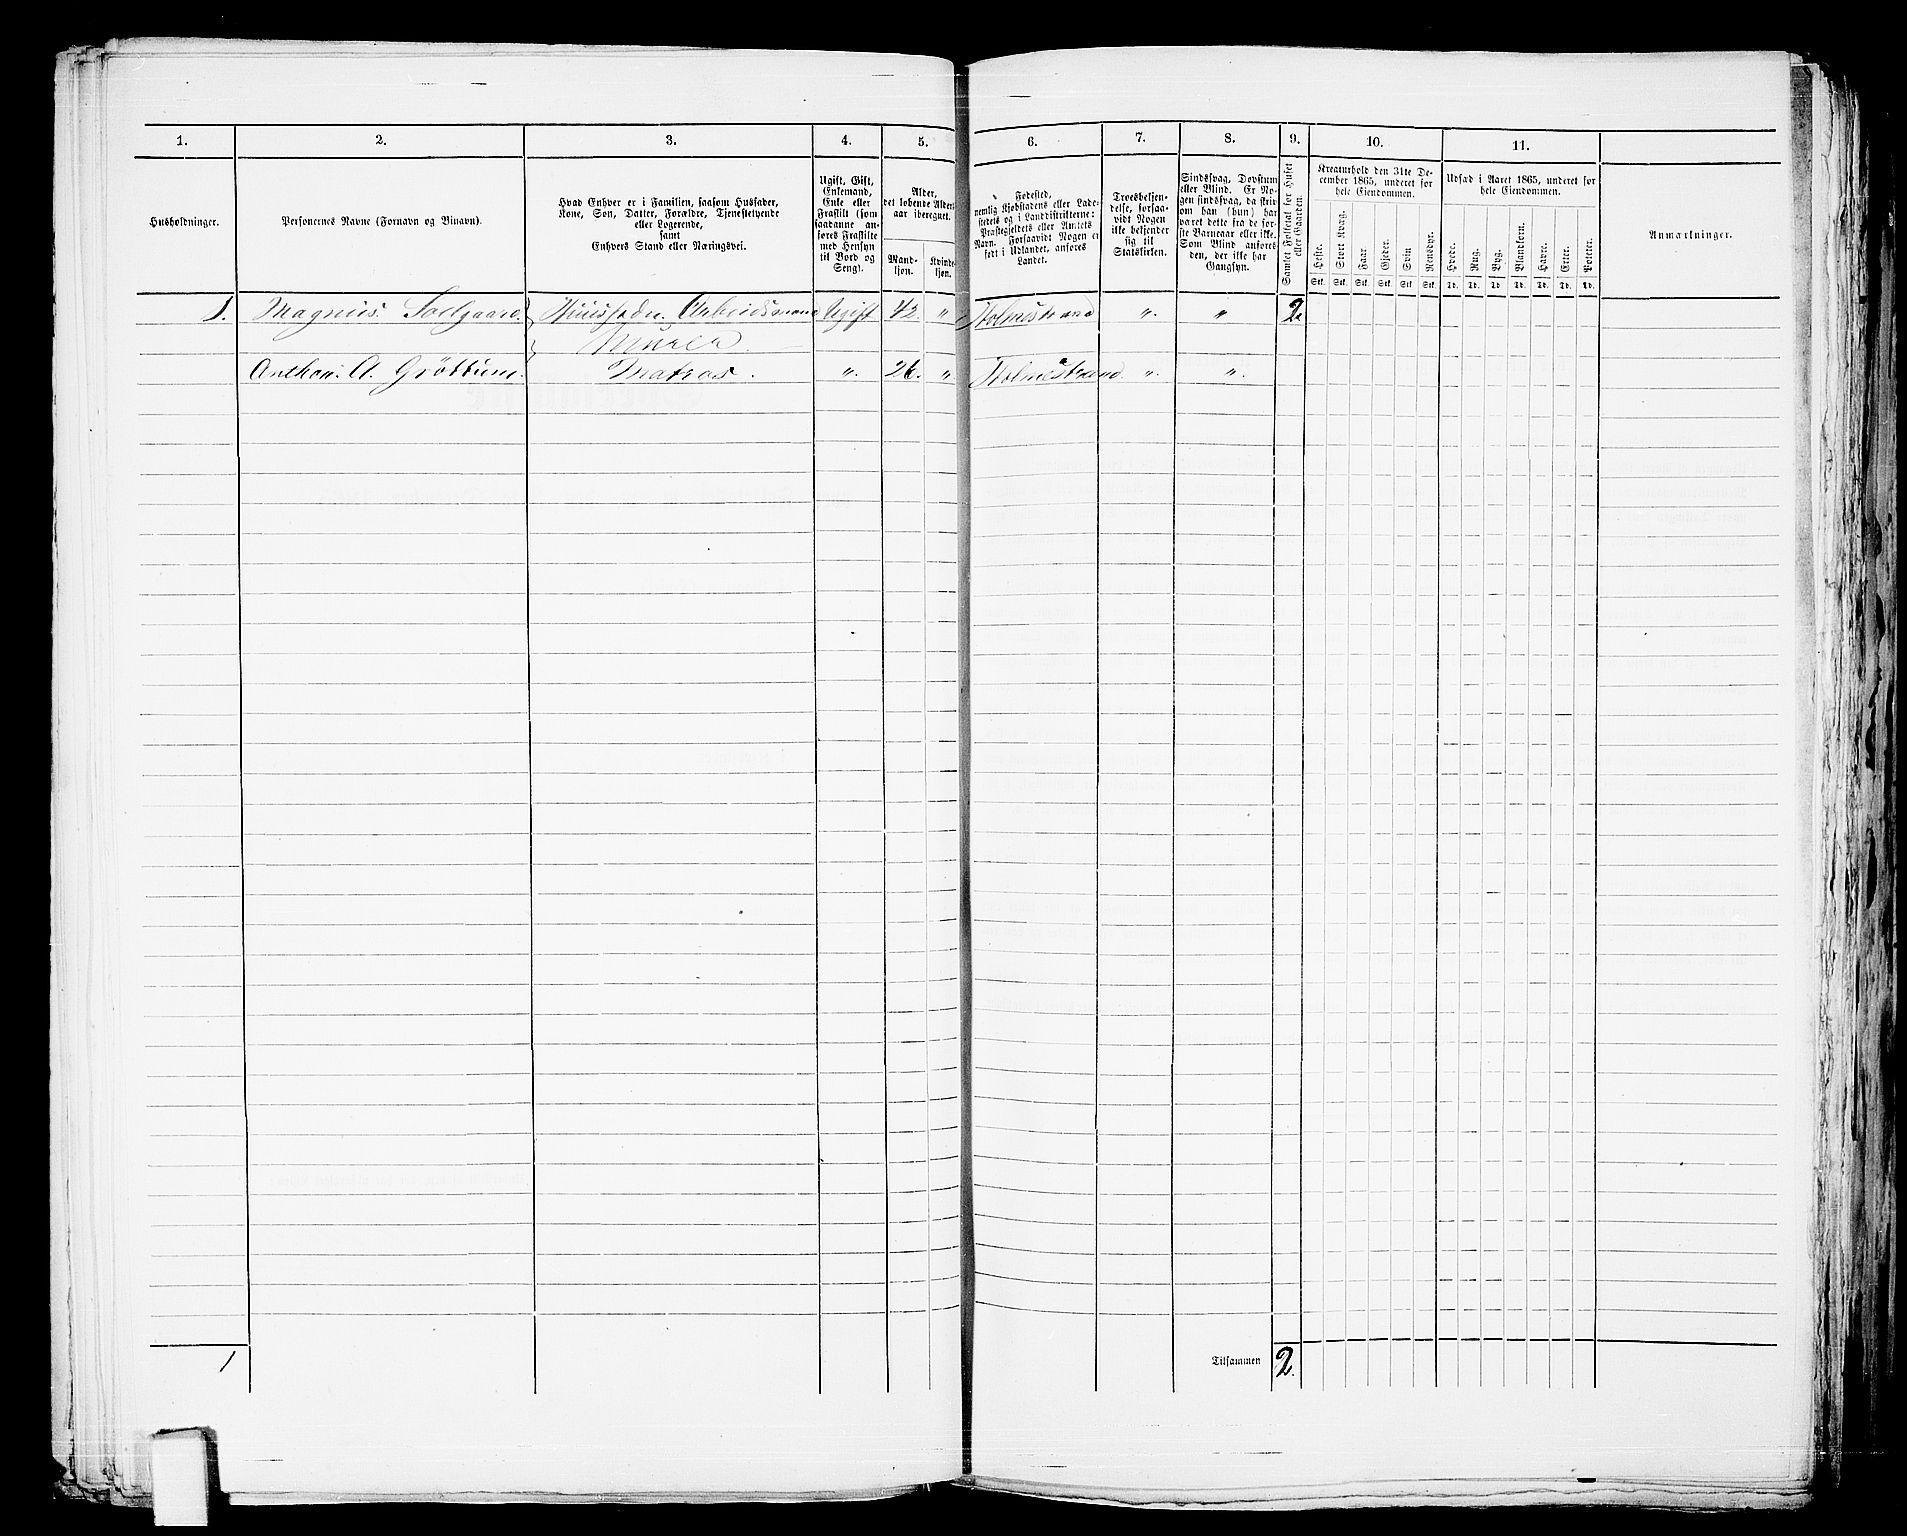 1. 2. 3. 4. 5. 6. 7. 8. 9. 10. 11.
Husholdninger.
Personernes Navne (Fornavn og Binavn).
Hvad Enhver er i Familien, saasom Husfader,
Kone, Søn, Datter, Forældre, Tjenestetyende
eller Logerende,
samt
Enhvers Stand eller Næringsvei.
Ugift, Gift,
Enkemand,
Enke eller
Fraskilt (som
saadanne an-
føres Fraskilte
med Hensyn
til Bord og
Seng).
Alder,
det løbende Alders-
aar iberegnet.
Mand-
kjøn.
Kvinde-
kjøn.
Fødested,
nemlig Kjøbstadens eller Lade-
stedets og i Landdistrikterne:
Præstegjeldets eller Amtets
Navn. Forsaavidt Nogen er
født i Udlandet, anføres
Landet.
Troesbekjen-
delse, forsaa-
vidt Nogen
ikke bekjender
sig til
Statskirken.
Sindssvag, Døvstum
eller Blind. Er No-
gen sindssvag, da skriv
om han (hun) har
været dette fra de før-
ste Barneaar eller ikke.
Som Blind anføres
den, der ikke har
Gangsyn.
Samlet Folketal for Huset
eller Gaarden.
Kreaturhold den 31te De-
cember 1865, underet for
hele Eiendommen.
Heste. Stort Kvæg. Faar. Gjeder. Svin Rensdyr.
Stk. Stk. Stk. Stk. Stk. Stk.
Udsæd i Aaret 1865, underet for
hele Eiendommen.
Hvede. Rug. Byg. Blandkorn. Havre. Erter. Poteter.
Td. Td. Td. Td. Td. Td. Td.
Anmærkninger.
1. Magnus Solgaard. Huusfader. Arbeidsmand Ugift 42. " Holmestrand ". " 2.
Murer
Anthon. A. Grøttum. Matros. ". 26. " Holmestrand. ". ".
1 Tilsammen 2.